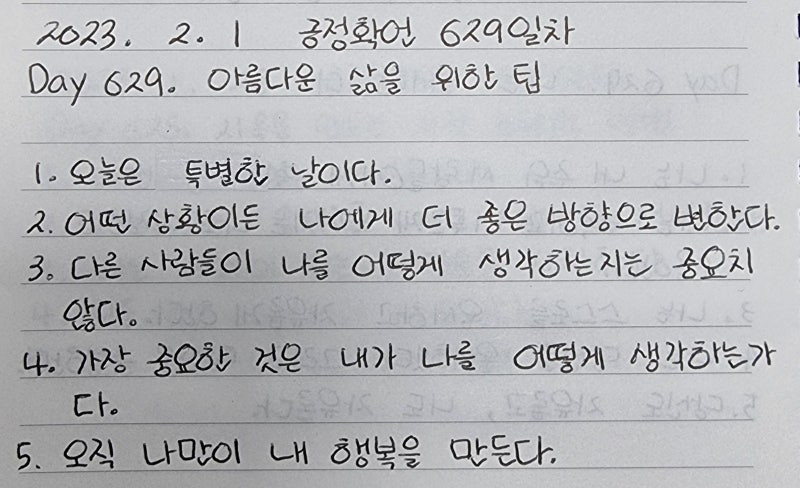 2023. 2. 1 긍정확언 629일차
Day 629. 아름다운 삶을 위한 팁
1. 오늘은 특별한 날이다.
2. 어떤 상황이든 나에게 더 좋은 방향으로 변한다.
3. 다른 사람들이 나를 어떻게 생각하는지는 중요치
않다.
4. 가장 중요한 것은 내가 나를 어떻게 생각하는가
다.
5. 오직 나만이 내 행복을 만든다.